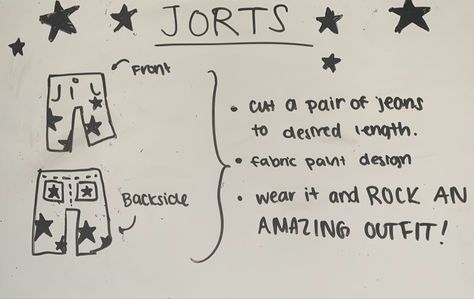 JORTS
Front
JiL
Backside
• cut a pair of jeans
to desired length.
• fabric paint design
• wear it and ROCK AN
AMAZING OUTFIT!